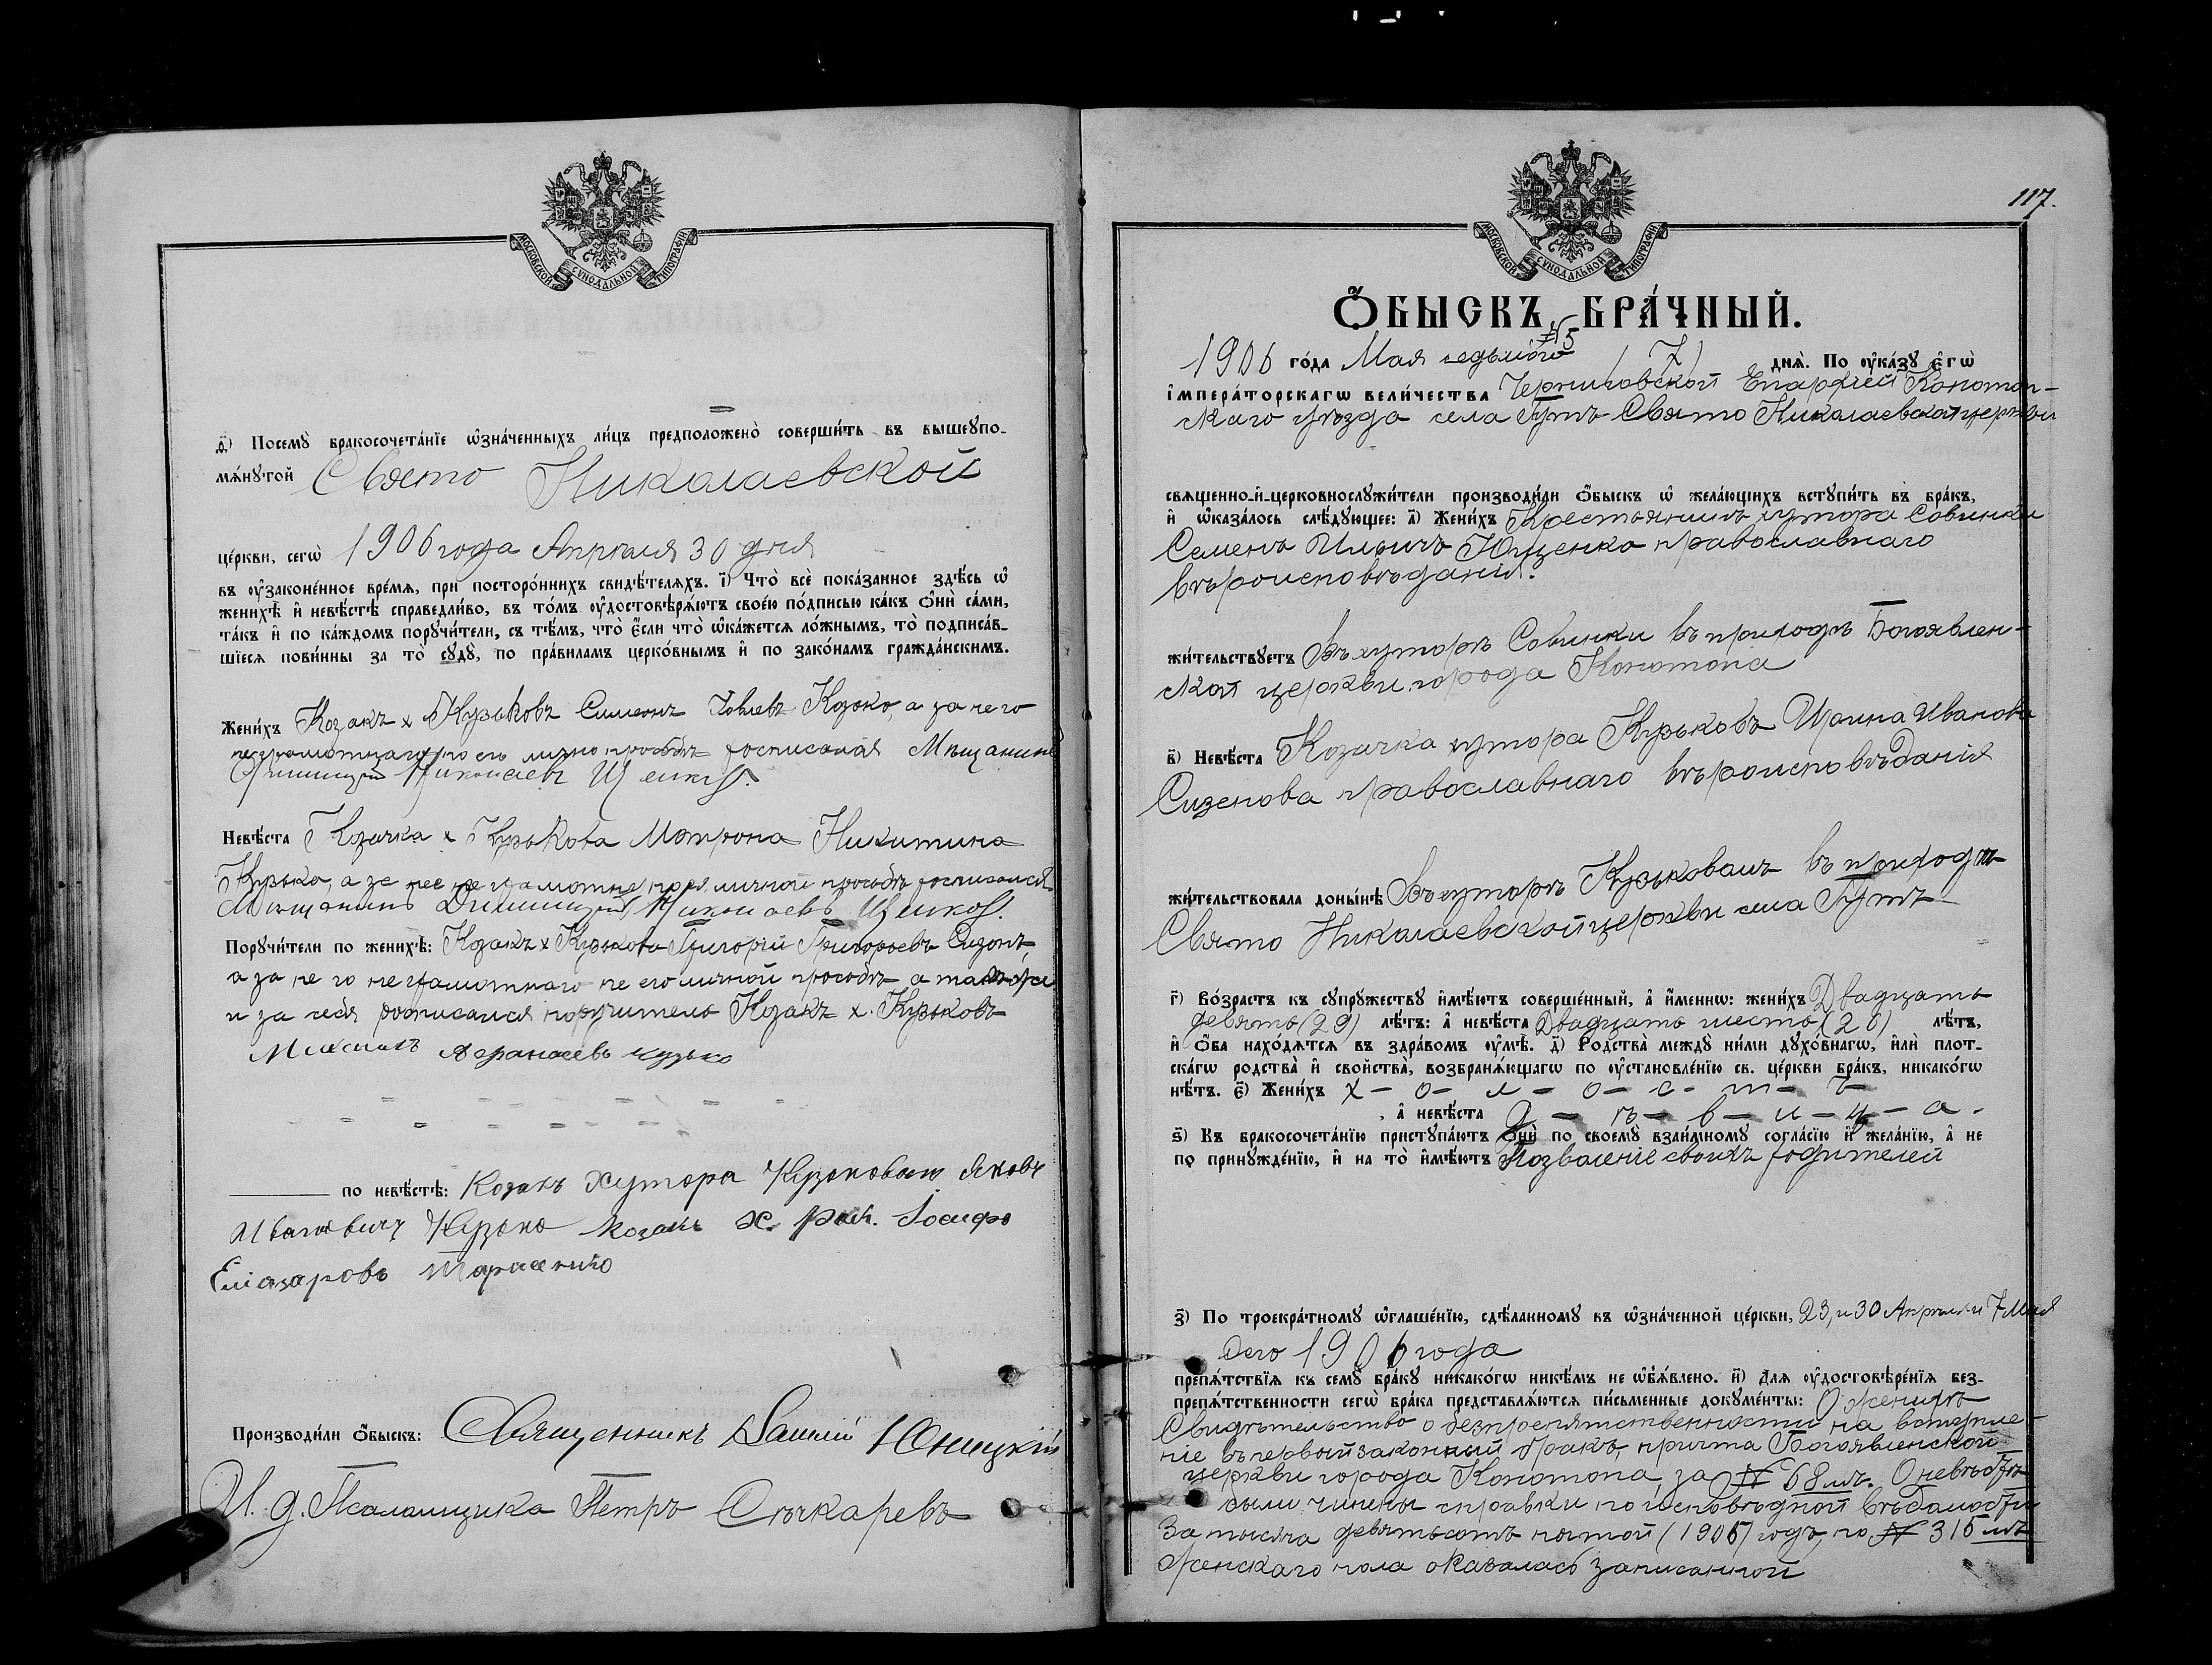 МОСКОВСКОЙ СѴНОДАЛЬНОЙ ТИПОГРАФІИ
д҃) Посемꙋ̀ бракосочета́нїе ѡ҆зна́ченныхъ ли́цъ предположено̀ соверши́ть въ вышеꙋпо-
мѧ́нꙋтой Свято Николаевской
це́ркви, сегѡ̀ 1906 года Апрѣля 30 дня
въ ᲂу҆законе́нное вре́мѧ, при посторо́ннихъ свидѣ́телѧхъ. і҃) Что̀ всѐ пока́занное здѣ́сь ѡ҆
женихѣ̀ и҆ невѣ́стѣ справедли́во, въ то́мъ ᲂу҆достовѣрѧ́ютъ свое́ю по́дписью ка́къ ѻ҆нѝ са́ми,
та́къ и҆ по ка́ждомъ порꙋчи́тели, съ тѣ́мъ, что̀ є҆́сли что̀ ѡ҆ка́жетсѧ ло́жнымъ, то̀ подписа́в-
шїесѧ пови́нны за то̀ сꙋдꙋ̀, по пра́виламъ церко́внымъ и҆ по зако́намъ гражда́нскимъ.
Жени́хъ Козакъ х Кузьковъ Симеонъ Козко, а за него
неграмотнаго по его лично просьбѣ росписался Мѣщанинъ
Николаевъ
Невѣ́ста Козачка х Кузькова Мотрона Никитина
Кузько, а за нее неграмотную по ея личной просьбѣ росписался
Мѣщанинъ Димитрій Николаевъ
Порꙋчи́тели по женихѣ̀: Козакъ х Кузькова Григорій Григорьевъ Сизонъ,
а за него неграмотнаго по его личной просьбѣ а также
и за себя росписался поручитель Козакъ х. Кузьковъ
Максимъ Афанасьевъ Кузько
по невѣ́стѣ: Козакъ хутора Кузьковыхъ Яковъ
Ивановичъ Кузько козакъ х. Іосифъ
Елиазаровъ Тарасенко
Производи́ли ѻ҆́быскъ: Священникъ Юницкій
И. д. Псаломщика Петръ Сѣчкаревъ
117.
МОСКОВСКОЙ СѴНОДАЛЬНОЙ ТИПОГРАФІИ
Ѻ҆́БЫСКЪ БРА́ЧНЫЙ.
№ 5
1906 го́да Мая седьмого (7) днѧ̀. По ᲂу҆ка́зꙋ є҆гѡ̀
і҆мпера́торскагѡ вели́чества Черниговской Епархіей Конотоп-
скаго уѣзда села Гутъ Свято Николаевской церкви
свѧще́нно-и҆-церковнослꙋжи́тели производи́ли ѻ҆́быскъ ѡ҆ жела́ющихъ встꙋпи́ть въ бра́къ,
и҆ ѡ҆каза́лось слѣ́дꙋющее: а҃) Жени́хъ Крестьянинъ хутора Совинки
Семенъ Ильичъ Ющенко православнаго
вѣроисповѣданія.
жи́тельствꙋетъ въ хуторѣ Совинки въ приходѣ Богоявлен-
ской церкви города Конотопа
в҃) Невѣ́ста Козачка хутора Кузьковъ Ирина Иванова
Сизенова православнаго вѣроисповѣданія
жи́тельствовала доны́нѣ въ хуторѣ Кузьковамъ въ приходѣ
Свято Николаевской церкви села Гутъ
г҃) Во́зрастъ къ сꙋпрꙋ́жествꙋ и҆мѣ́ютъ соверше́нный, а҆ и҆́меннѡ: жени́хъ Двадцать
девять (29) лѣ́тъ: а҆ невѣ́ста двадцать шесть (26) лѣ́тъ,
и҆ ѻ҆́ба нахо́дѧтсѧ въ здра́вомъ ᲂу҆мѣ̀. д҃) Родства̀ междꙋ̀ ни́ми дꙋхо́внагѡ, и҆лѝ плот-
ска́гѡ родства̀ и҆ сво́йства̀, возбранѧ́ющагѡ по ᲂу҆становле́нїю св. це́ркви бра́къ, никако́гѡ
нѣ́тъ. є҃) Жени́хъ х – о – л – о – с – т – ъ
, а҆ невѣ́ста д – ѣ – в – и – ц – а.
ѕ҃) Къ бракосочета́нїю пристꙋпа́ютъ ѻ҆нѝ по своемꙋ̀ взаи́мномꙋ согла́сїю и҆ жела́нїю, а҆ не
по принꙋжде́нїю, и҆ на то̀ и҆мѣ́ютъ позволеніе своихъ родителей
з҃) По троекра́тномꙋ ѡ҆глаше́нїю, сдѣ́ланномꙋ въ ѡ҆зна́ченной це́ркви, 23, и 30 Апрѣля и 7 Мая
сего 1906 года
препѧ́тствїѧ къ семꙋ̀ бра́кꙋ никако́гѡ никѣ́мъ не ѡ҆б̾ѧ́влено. и҃) Длѧ ᲂу҆достовѣре́нїѧ без-
препѧ́тственности сегѡ̀ бра́ка представлѧ́ютсѧ пи́сьменные докꙋме́нты: О женихѣ
Свидѣтельство о безпрепятственности на вступле-
ніе въ первый законный бракъ, причта Богоявленской
церкви города Конотопа за № 68мъ. О невѣстѣ
были чинены справки по исповѣдной вѣдомости
за тысяча девятьсотъ пятой (1905) годъ, по № 315мъ
женскаго пола оказалась записанной